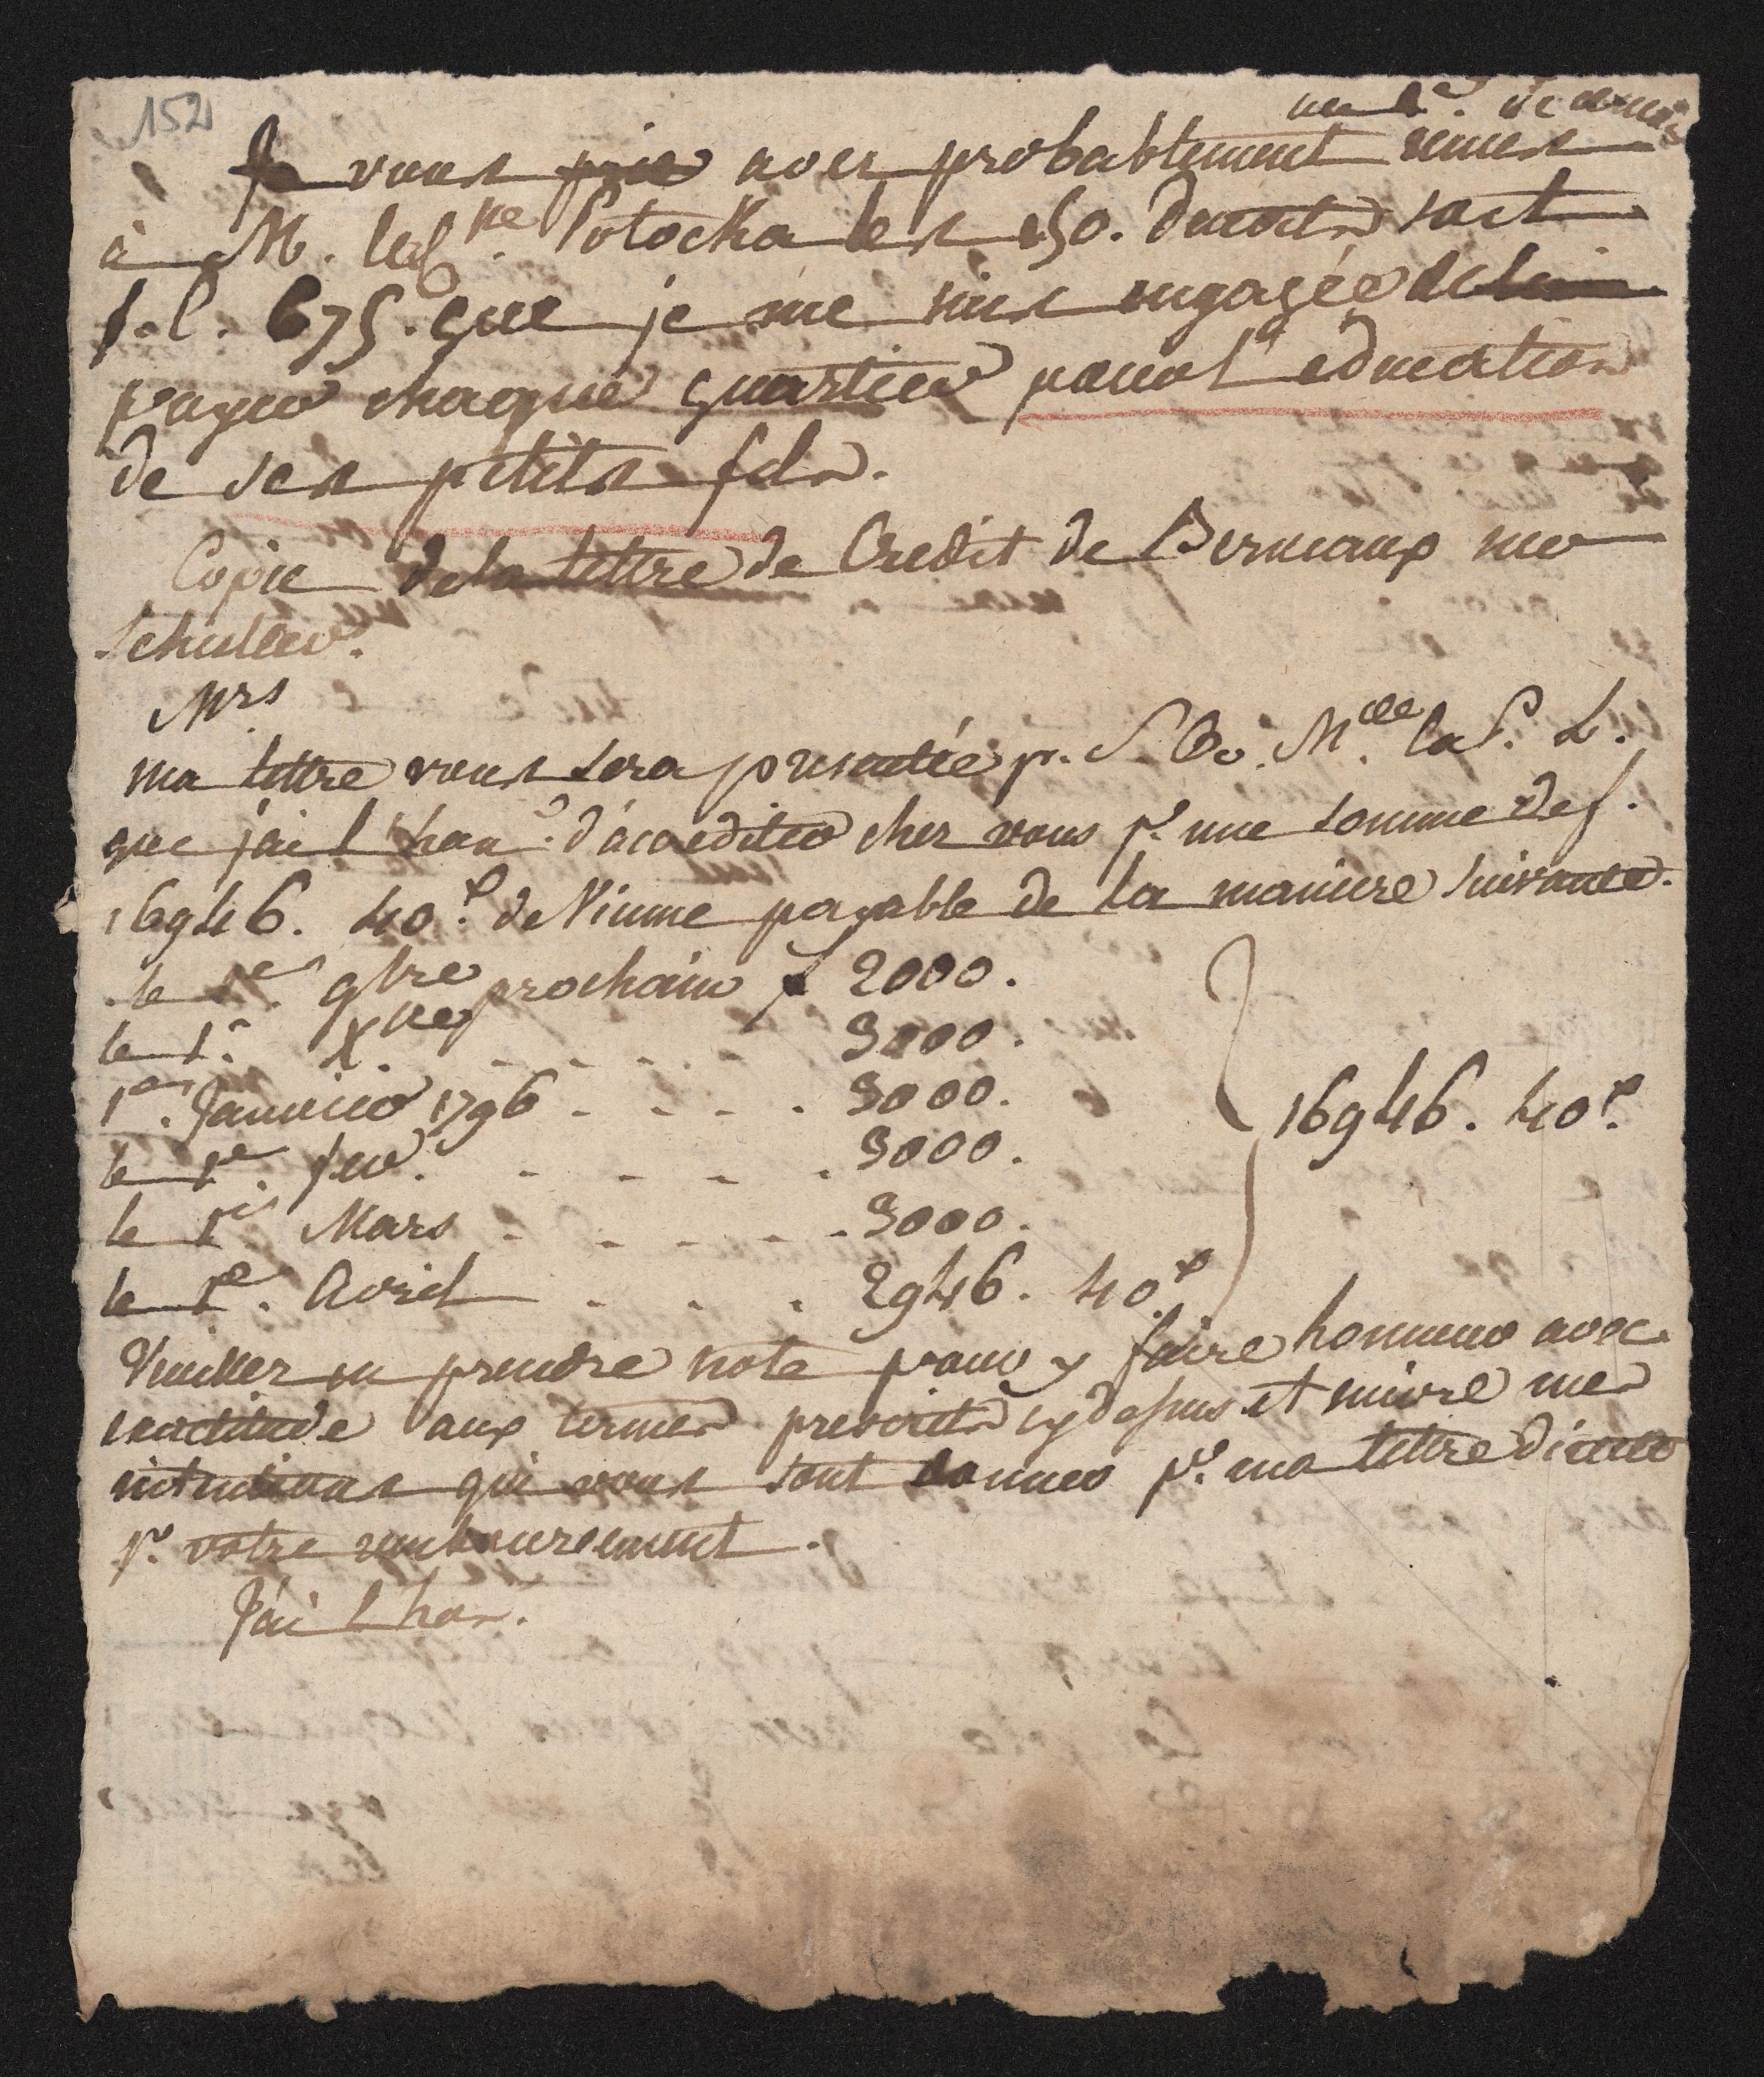 152
au 1er. de ce mois
Je vous prie avez probablement remis
à M. la Csse Potocka les 150. ducats soit
f. l. 675. que je me suis engagée de lui
payer chaque quartier pour l'education
de ses petits fils.
Copie de la lettre de Credit de Bernaux sur
Schuller.
Mrs
ma lettre vous sera presentée pr. S. A. Mde la P. L.
que j'ai l'honr. d'acrediter chez vous pr. une somme de f.
16946. 40x. de Vienne payable de la maniere suivante.
le 1er. 9bre prochain f 2000.
le 1r. Xbre - - - - 3000.
1er. Janvier 1796 - - - . 3000.
le 1er. fevr. - - - . 3000.
le 1er Mars - - - - - 3000.
le 1er. Avril - - . 2946. 40x.
16946. 40x.
Veuillez en prendre note pour y faire honneur avec
exactitude aux termes prescrits cy dessus et suivre mes
instructions qui vous sont donnés pr. ma lettre d'avis
pr. votre remboursement.
J'ai l'hon.